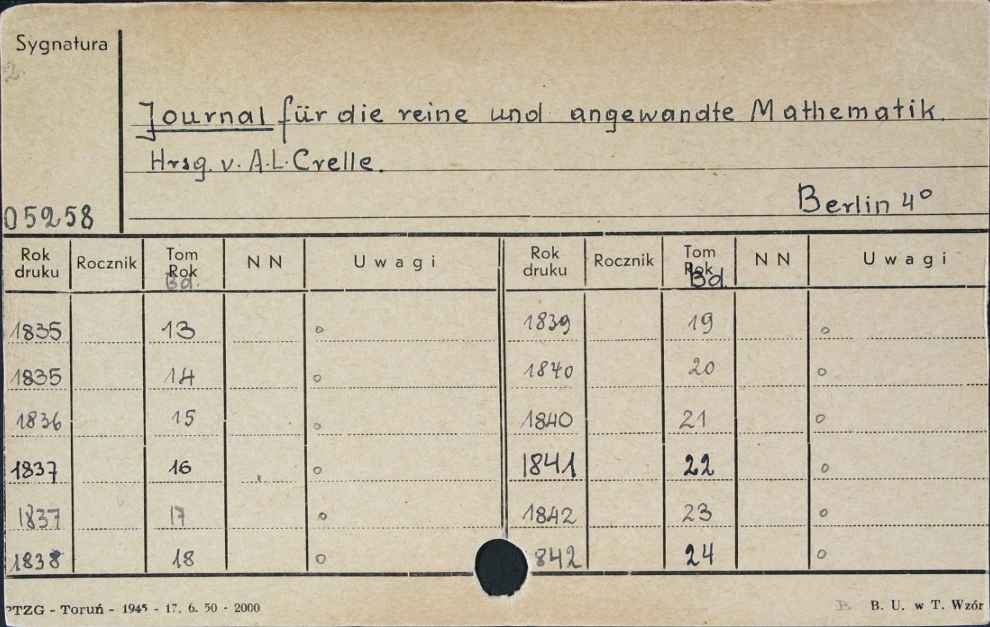 Sygnatura
2
Journal für die reine und angewandte Mathematik.
Hrsg. v. A.L. Crelle.
Berlin 4°
05258
Rok druku Rocznik Tom Rok Bd. N N Uwagi Rok druku Rocznik Tom Rok Bd. N N Uwagi
1835 13 ° 1839 19 °
1835 14 ° 1840 20 °
1836 15 ° 1840 21 °
1837 16 ° 1841 22 °
1837 17 ° 1842 23 °
1838 18 ° 842 24 °
PTZG - Toruń - 1945 - 17. 6. 50 - 2000 B. B. U. w T. Wzór